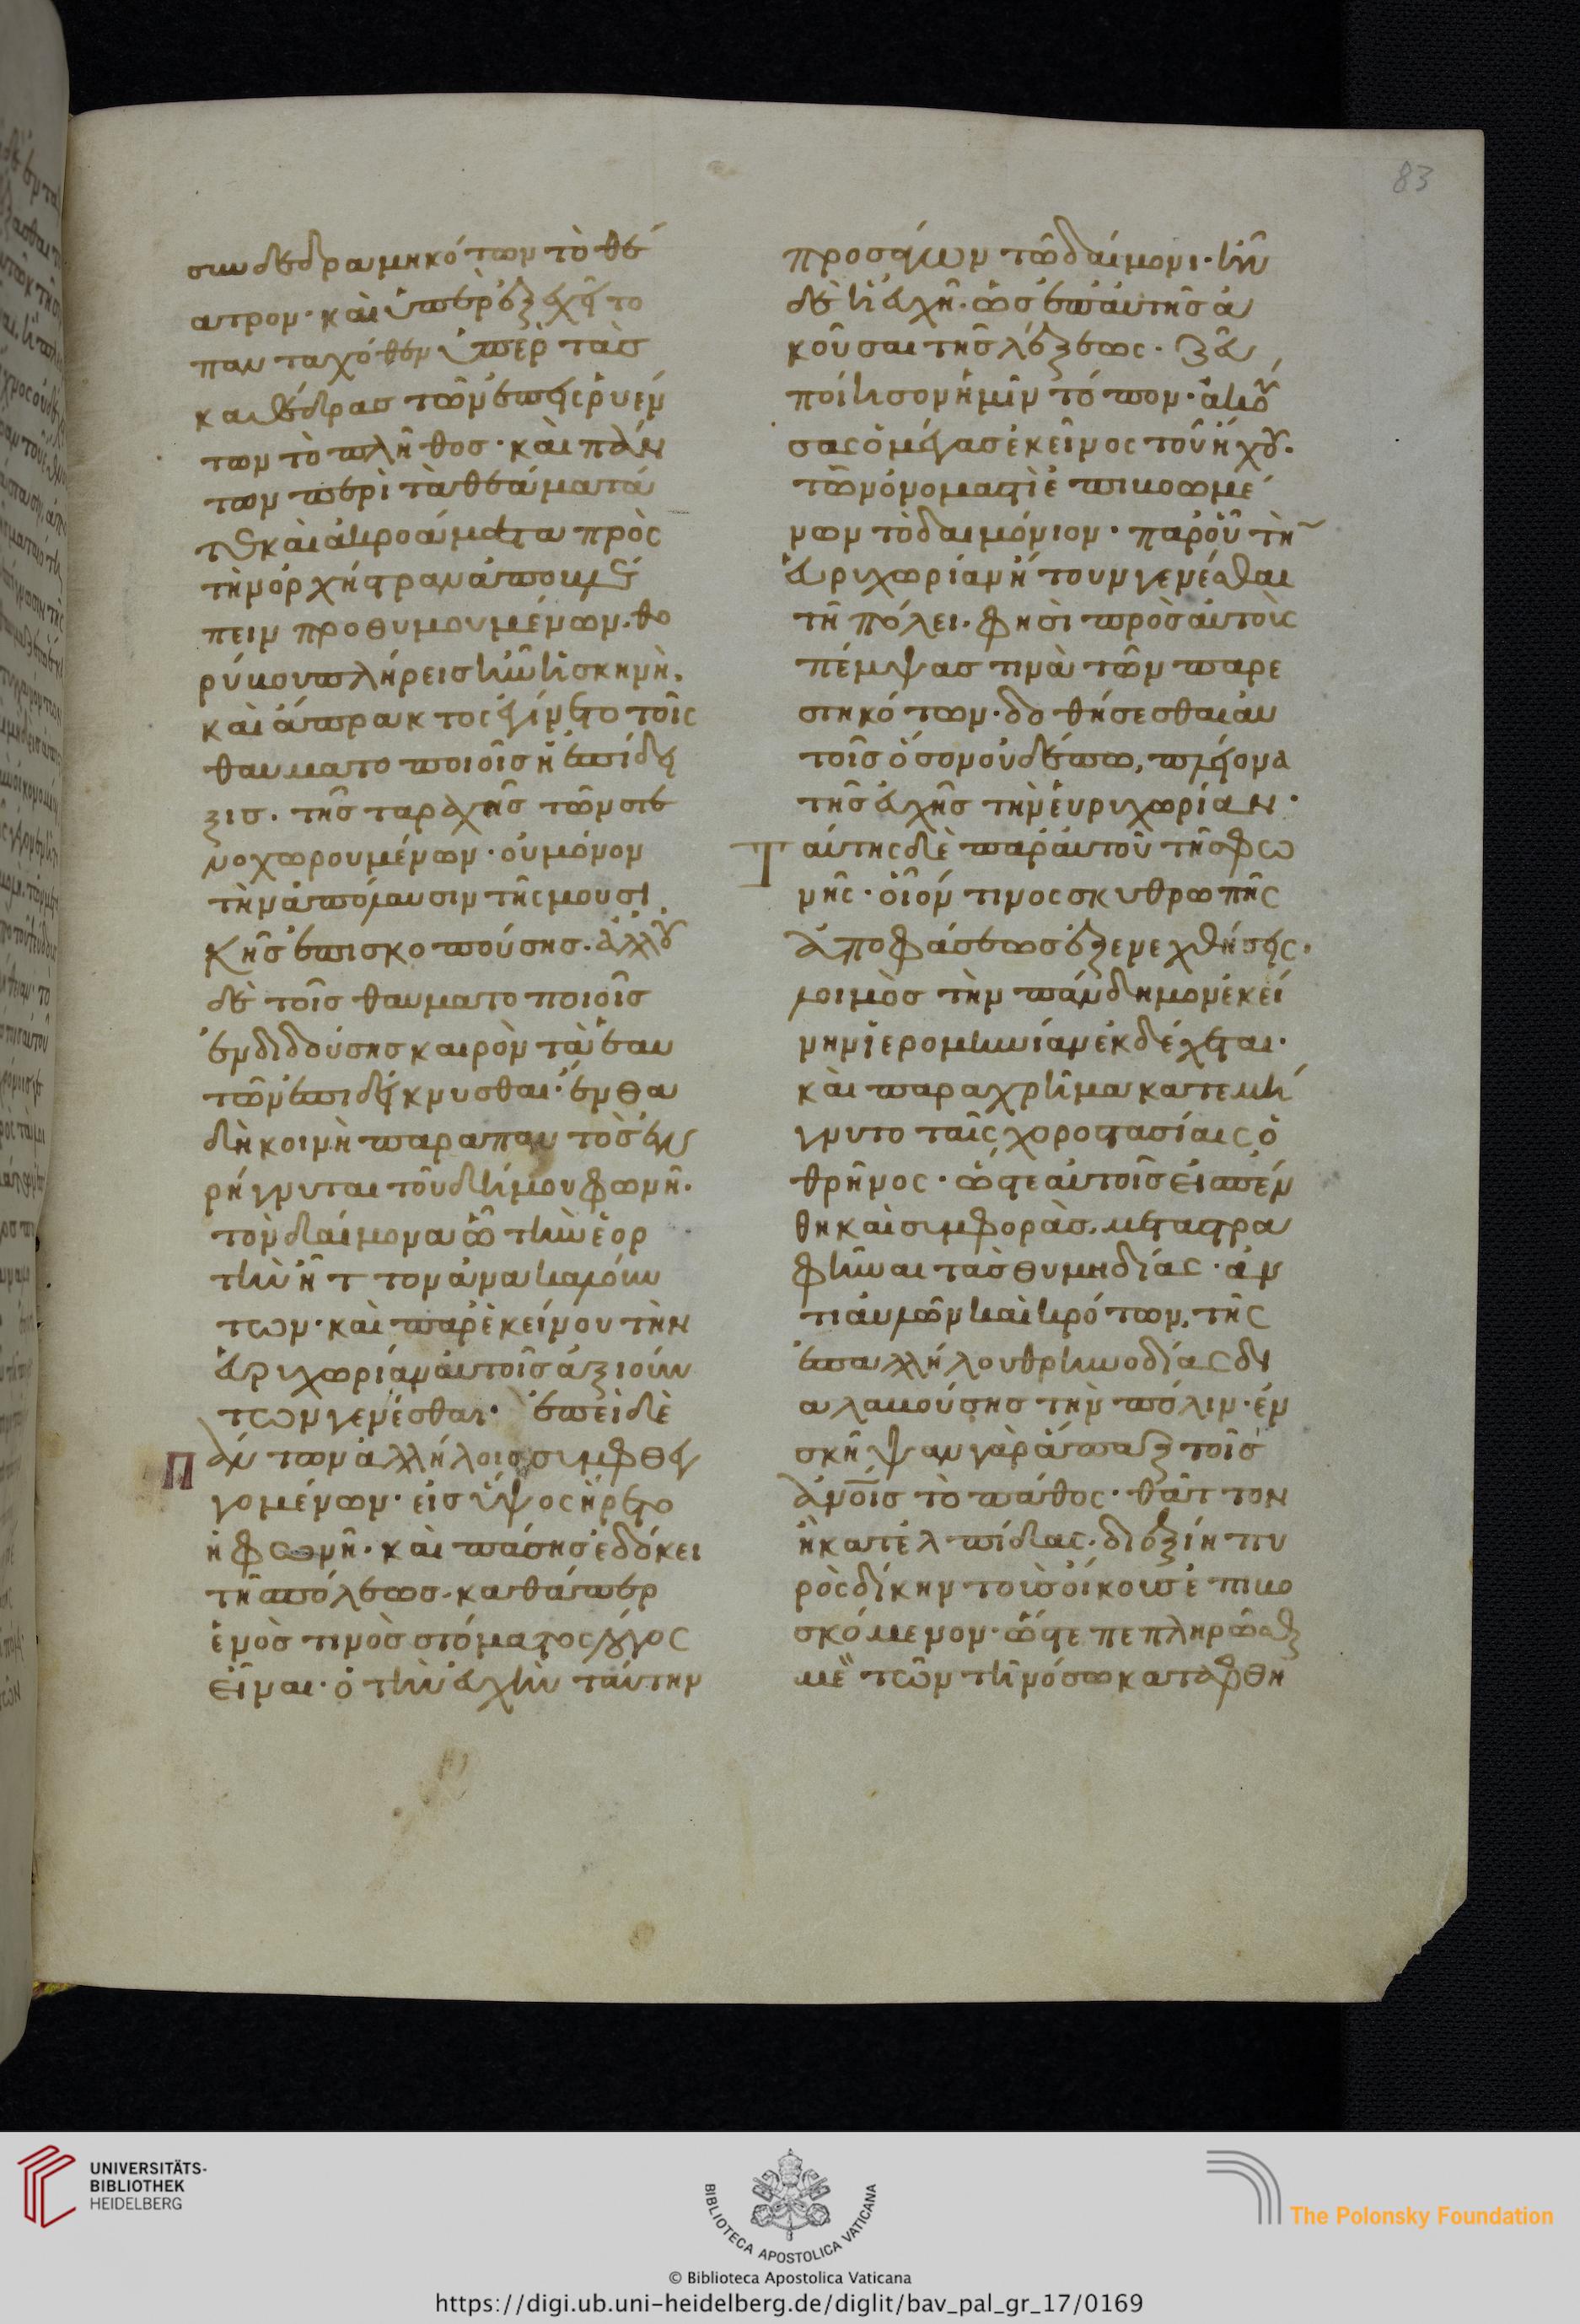 83
συνδεδραμηκότων τὸ θέ
ατρον· καὶ ὑπερεξεχεῖτο
πανταχόθεν ὑπὲρ τὰσ
καθέδρασ τῶν ἐπεισρυέν
των τὸ πλῆθοσ· καὶ πάν
των περὶ τὰ θεάματά
τε καὶ ἀκροάματα πρὸς
τὴν ὀρχήστραν ἀποσκο
πειν προθυμουμένων. θο
ρύβου πλήρεισ ἦν ἡ σκηνὴ.
καὶ ἄπρακτος ἐγίνετο τοῖς
θαυματοποιοῖσ ἡ ἐπίδει
ξισ. τῆσ ταραχῆσ τῶν στε
νοχωρουμένων· οὐ μόνον
τὴν ἀπόλαυσιν τῆς μουσι
κῆσ ἐπισκοπούσησ. ἀλλ' οὐ
δὲ τοῖσ θαυματοποιοῖσ
ἐνδιδούσησ καιρὸν τὰ ἑαυ
τῶν ἐπιδείκνυσθαι· ἔνθα
δὴ κοινὴ παρὰ παντὸσ ἐκ
ρήγνυται τοῦ δήμου φωνῆ.
τὸν δαίμονα ὧ τὴν ἑορ
τὴν ἦγον ἀνακαλούν
των· καὶ παρ' ἐκείνου τὴν
εὐριχωρίαν αὐτοῖσ ἀξιούν
των γενέσθαι· ἐπεὶ δὲ
πάντων ἀλλήλοισ συμφθεγ
γομένων· εἰσ ὕψος ἤρετο
ἡ φωνῆ. καὶ πάσησ ἐδόκει
τῆσ πόλεωσ. καθάπερ
ἑνὸσ τινὸσ στόματος λόγος
εἶναι· ὁ τὴν εὐχὴν ταύτην
προσάγων τῶ δαίμονι· ἦν
δὲ ἡ εὐχῆ. ὡσ ἐπ' αὐτῆσ ἀ
κοῦσαι τῆσ λέξεως. Ζεῦ
ποίησον ἡμῖν τόπον· ἀκού
σας ὁ μέγασ ἐκεῖνος τοῦ ἤχου.
τῶν ὀνομαστὶ ἐπιβοωμέ
νων τὸ δαιμόνιον· παρ' οὗ τὴν
εὐριχωρίαν ἤτουν γενέσθαι
τῆ πόλει. φησὶ πρὸσ αὐτοὺς
πέμψασ τινὰ τῶν παρε
στηκότων· δοθήσεσθαι αὐ
τοῖσ ὅσον οὐδέπω, πλείονα
τῆσ εὐχῆσ τὴν εὐριχωρίαν·
Ταύτης δὲ παρ' αὐτοῦ τῆσ φω
νῆς· οἷόν τινος σκυθρωπῆς
ἀποφάσεωσ ἐξενεχθείσης.
λοιμὸσ τὴν πάνδημον ἐκεί
νην ἱερομηνίαν ἐκδέχεται.
καὶ παραχρῆμα κατεμί
γνυτο ταῖς χοροστασίαις ὁ
θρῆνος· ὥστε αὐτοῖσ εἰσ πέν
θη καὶ συμφορὰσ. μεταστρα
φῆναι τὰσ θυμηδίας· ἀν
τὶ αὐλῶν καὶ κρότων, τῆς
ἐπαλλήλου θρηνωδίας δι
αλαβούσησ τὴν πόλιν· ἐν
σκῆψαν γὰρ ἅπαξ τοῖσ
ἀνοῖσ τὸ πάθος· θᾶττον
ἢ κατ' ἐλπίδας. διεξίη πυ
ρὸς δίκην τοὺσ οἴκουσ ἐπιβο
σκόμενον· ὥστε πεπληρῶσθαι
μὲν τῶν τῆ νόσω καταφθη
UNIVERSITÄTS-
BIBLIOTHEK
HEIDELBERG
BIBLIOTECA APOSTOLICA VATICANA
The Polonsky Foundation
© Biblioteca Apostolica Vaticana
https://digi.ub.uni-heidelberg.de/diglit/bav_pal_gr_17/0169